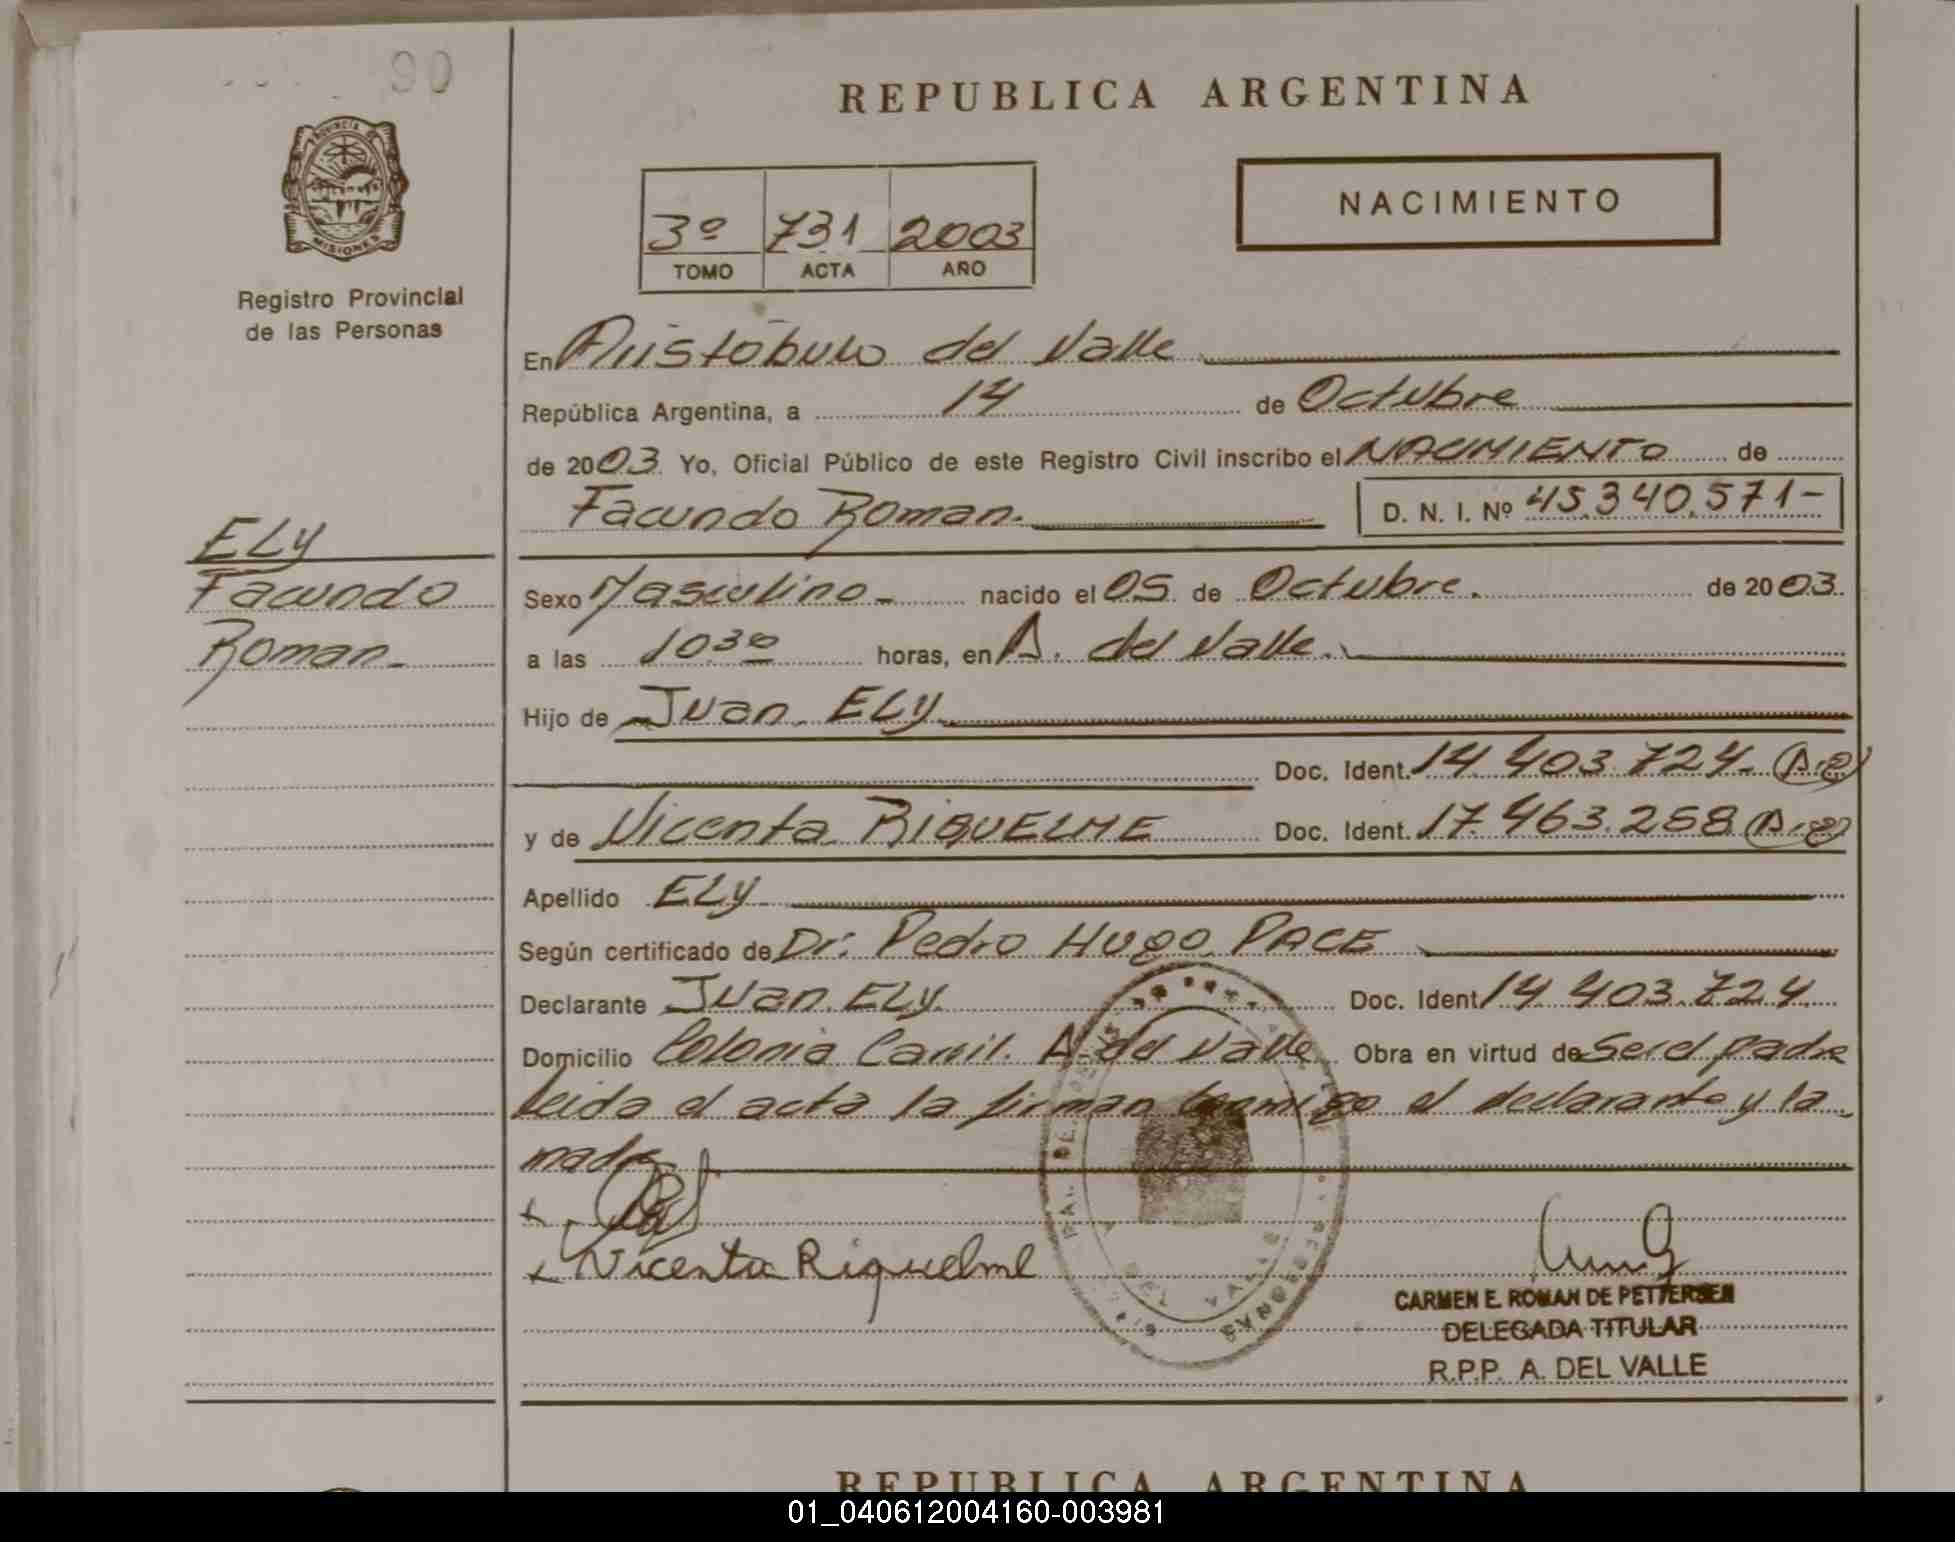 90
PROVINCIA DE
MISIONES
Registro Provincial
de las Personas
ELY
Facundo
Roman
REPUBLICA ARGENTINA
3º 731 2003
TOMO ACTA AÑO
NACIMIENTO
En Aristóbulo del Valle
República Argentina, a 14 de Octubre
de 2003. Yo, Oficial Público de este Registro Civil inscribo el NACIMIENTO de
Facundo Roman. D. N. I. Nº 45.340.571-
Sexo Masculino nacido el 05 de Octubre. de 2003.
a las 10.30 horas, en A. del Valle.
Hijo de Juan ELY
Doc. Ident. 14.403.724
y de Vicenta RIQUELME Doc. Ident. 17.463.258
Apellido ELY
Según certificado de Dr. Pedro Hugo PACE
Declarante Juan ELY. Doc. Ident. 14.403.724.
Domicilio Colonia A. del Valle. Obra en virtud de Ser el padre
leida el acta la firman conmigo el declarante y la
madre
Vicenta Riquelme
DEL VALLE
PERSONAS
CARMEN E. ROMAN DE PETTERSEN
DELEGADA TITULAR
R.P.P. A. DEL VALLE
REPUBLICA ARGENTINA
01_040612004160-003981